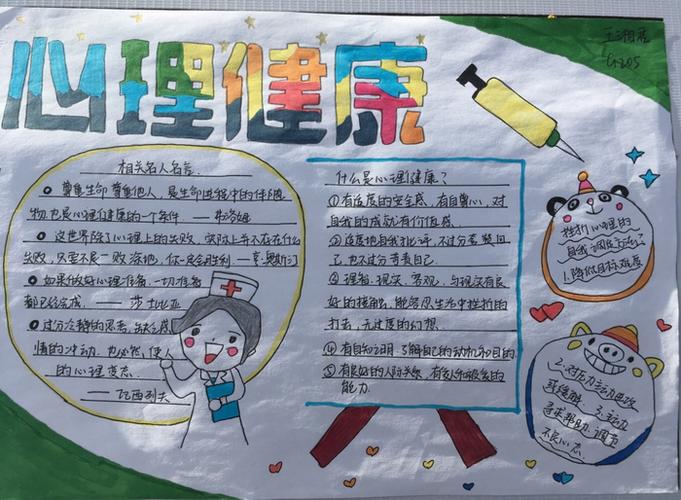 心理健康
C1205
相关名人名言.
尊重生命 尊重他人, 是生命进程中的伴随
物, 也是心理健康的一个条件. —— 弗洛姆
这世界除了心理上的失败, 实际上并不存在什么
失败, 只要不是一败涂地, 你一定会胜利. —— 亨·奥斯汀
如果做好心理准备, 一切准备
都已经完成. —— 莎士比亚
过分冷静的思考, 缺乏感
情的冲动, 也必然使人
的心理变态.
—— 瓦西列夫
什么是心理健康?
①有适度的安全感, 有自尊心, 对
自我的成就有价值感.
②适度地自我批评, 不过分夸耀自
己也不过分苛责自己.
③理智, 现实, 客观, 与现实有良
好的接触, 能容忍生活中挫折的
打击, 无过度的幻想.
④有自知之明, 了解自己的动机和目的
⑤有良好的人际关系, 有爱人和被爱的
能力.
挫折心理的
自我调适方法?
1.降低目标难度
2.对压力主动出攻
寻求帮助, 调节
不良心态.